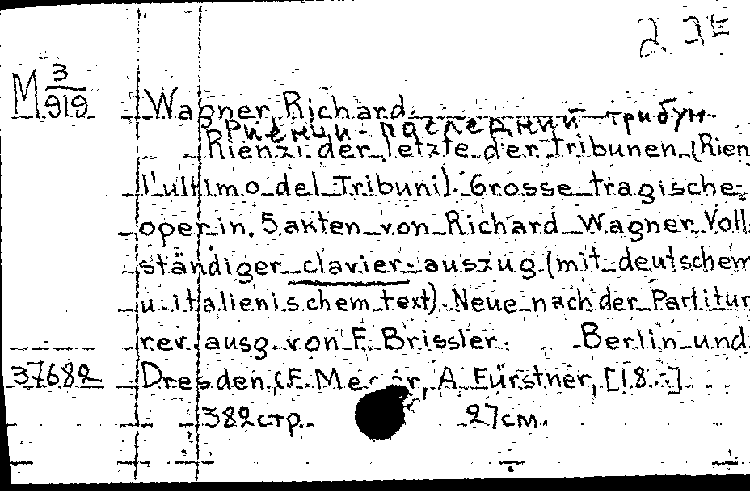 M 3/919
Wagner, Richard
Риенци - последний трибун
Rienzi. der letzte der Tribunen (Rien
l'ultimo del Tribuni). Grosse tragische
oper in. 5 akten von Richard Wagner Voll
ständiger clavier-auszug (mit deutschem
u. italienischem text). Neue nach der Partitur
rev. ausg. von F. Brissler. Berlin und
37682 Dresden, (F. Meser, A. Fürstner, [18.-]
382 стр. 27 см.